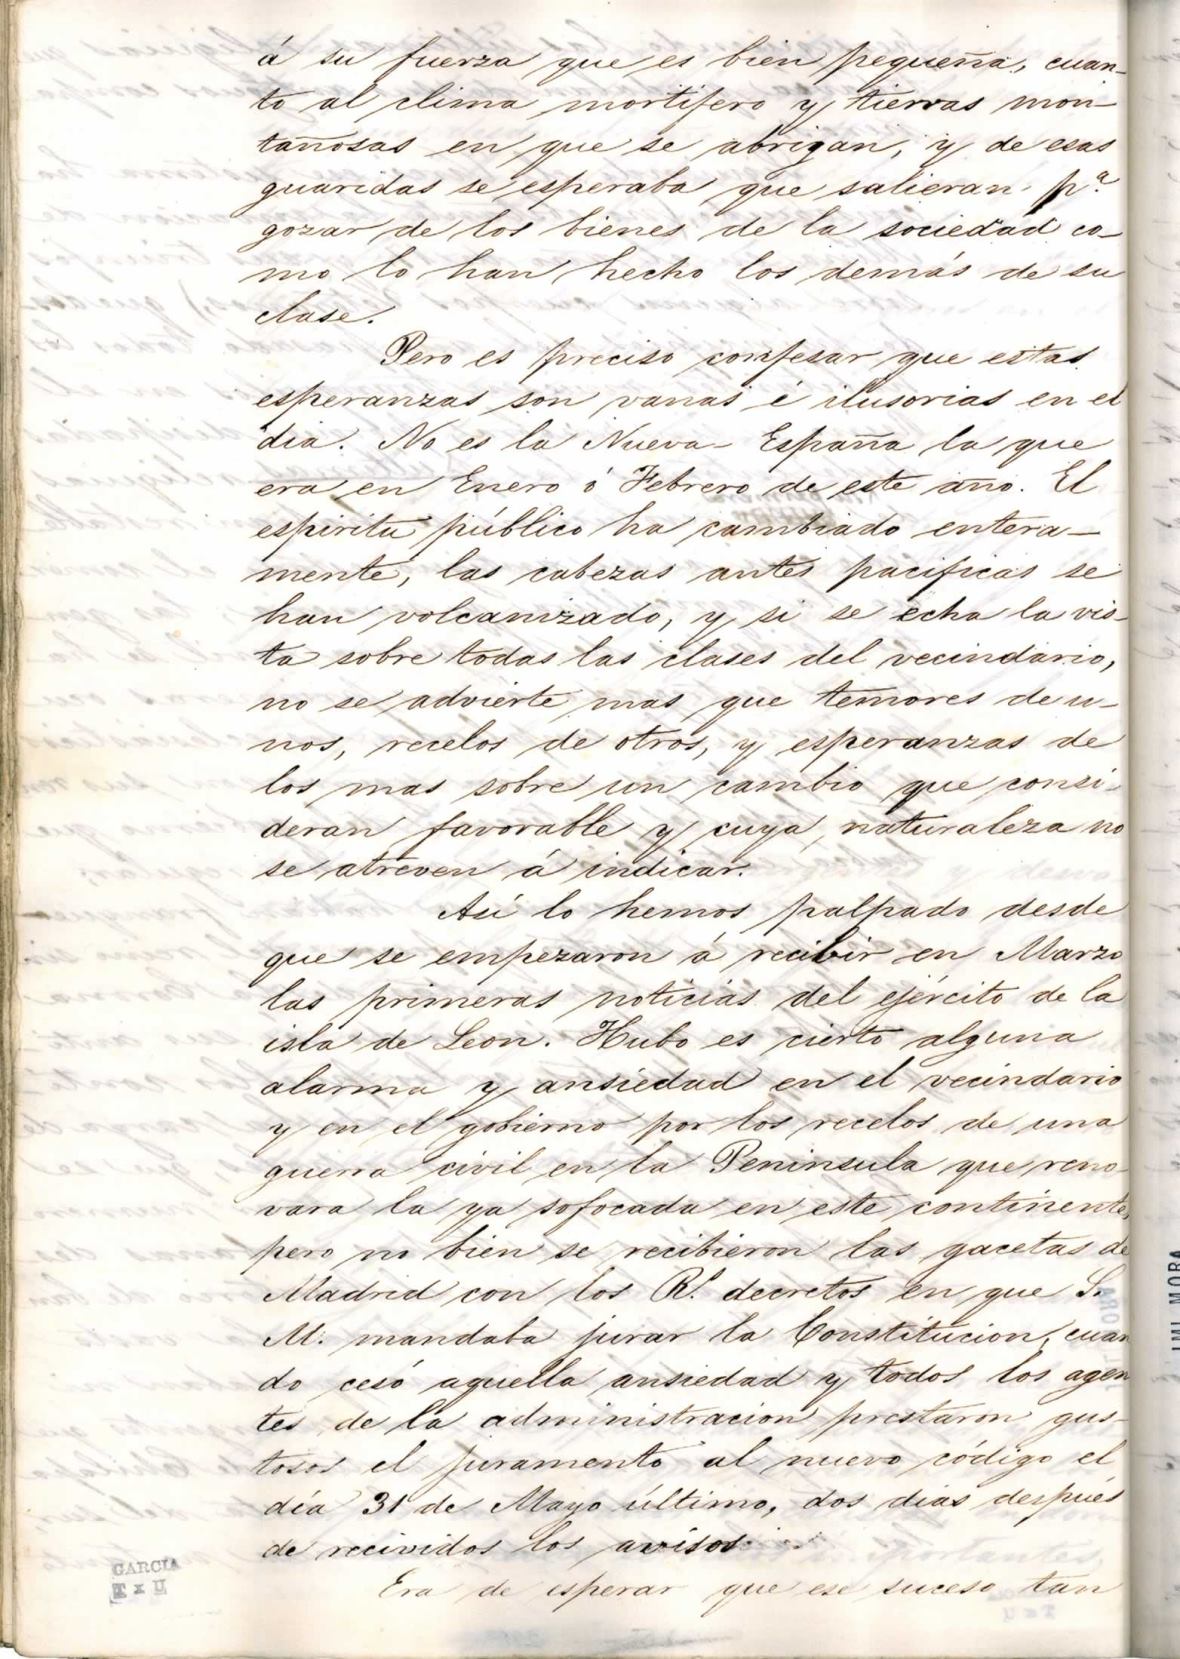 á su fuerza que es bien pequeña, cuan-
to al clima mortifero y tierras mon-
tañosas en que se abrigan, y de esas
guaridas se esperaba que salieran pª
gozar de los bienes de la sociedad co-
mo lo han hecho los demás de su
clase.
Pero es preciso confesar que estas
esperanzas son vanas é ilusorias en el
dia. No es la Nueva-España la que
era en Enero ó Febrero de este año. El
espiritu público ha cambiado entera-
mente, las cabezas antes pacificas se
han volcanizado, y si se echa la vis-
ta sobre todas las clases del vecindario,
no se advierte mas que temores de u-
nos, recelos de otros, y esperanzas de
los mas sobre un cambio que consi-
deran favorable y cuya naturaleza no
se atreven á indicar.
Así lo hemos palpado desde
que se empezaron á recibir en Marzo
las primeras noticias del ejército de la
isla de Leon. Hubo es cierto alguna
alarma y ansiedad en el vecindario
y en el gobierno por los recelos de una
guerra civil en la Peninsula que reno-
vara la ya sofocada en este continente,
pero no bien se recibieron las gacetas de
Madrid con los Rˢ. decretos en que S.
M. mandaba jurar la Constitucion, cuan
do cesó aquella ansiedad y todos los agen
tes de la administracion prestaron gus-
tosos el juramento al nuevo código el
día 31 de Mayo último, dos dias después
de recividos los avisos.
Era de esperar que ese suceso tan
GARCIA
T x U
IMI MORA